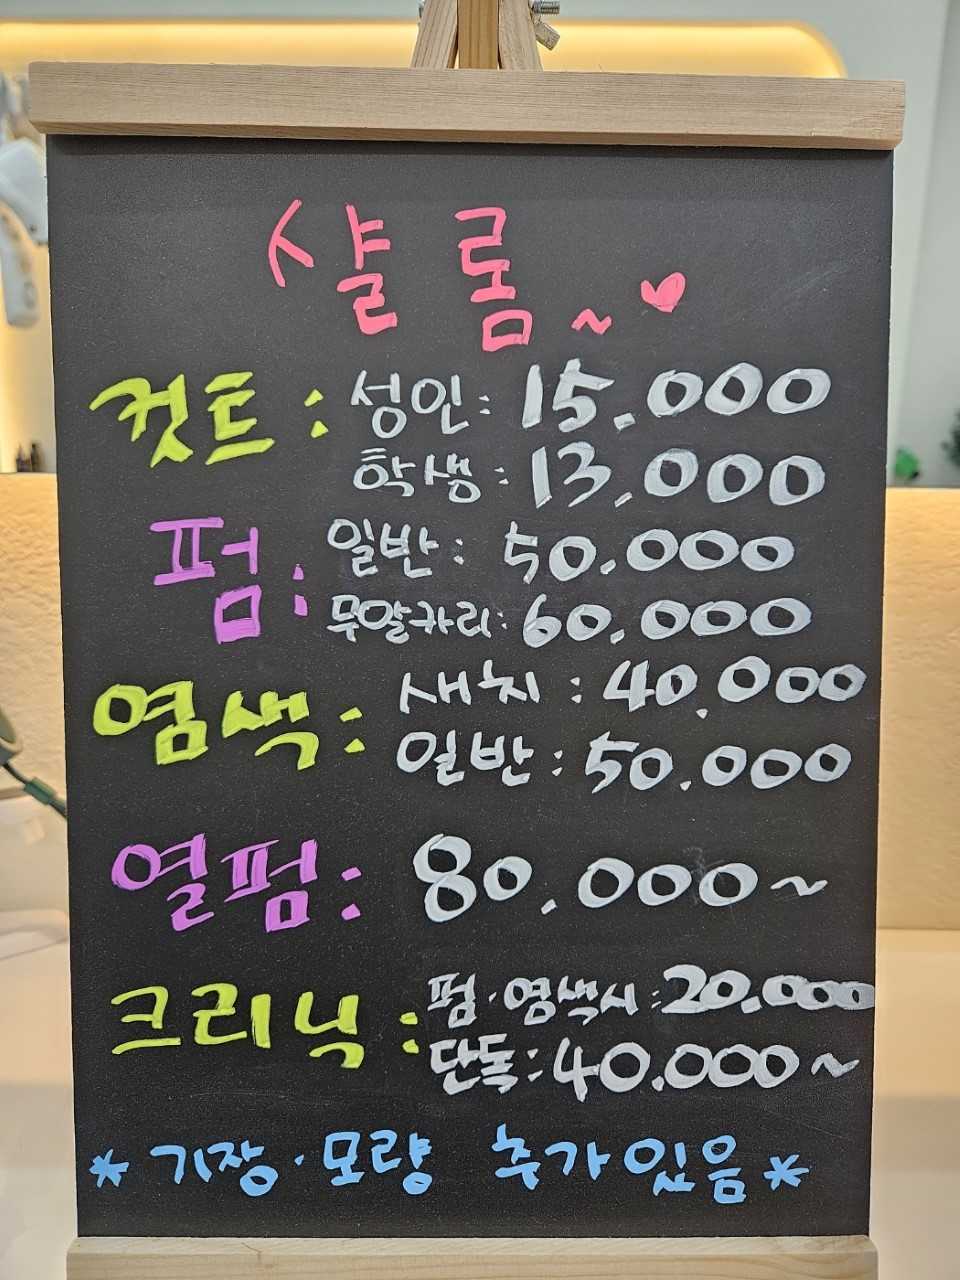 샬롬~♥
컷트: 성인: 15,000
학생: 13,000
펌: 일반: 50,000
무알카리: 60,000
염색: 새치: 40,000
일반: 50,000
열펌: 80,000~
크리닉: 펌·염색시: 20,000
단독: 40,000~
*기장·모량 추가있음*